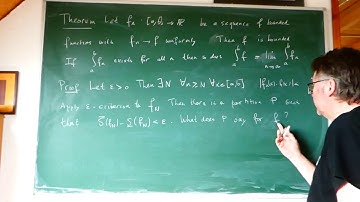 Theorem Let fₙ : [a,b] → ℝ be a sequence of bounded
functions with fₙ → f uniformly. Then f is bounded
If ∫ₐᵇ fₙ exists for all n then so does ∫ₐᵇ f = lim n→∞ ∫ₐᵇ fₙ
Proof Let ε>0 Then ∃N ∀n≥N ∀x∈[a,b]
Apply ε-criterion to f_N Then there is a partition P such
that S(f_N) - S(f_N) < ε. What does P say for f ?